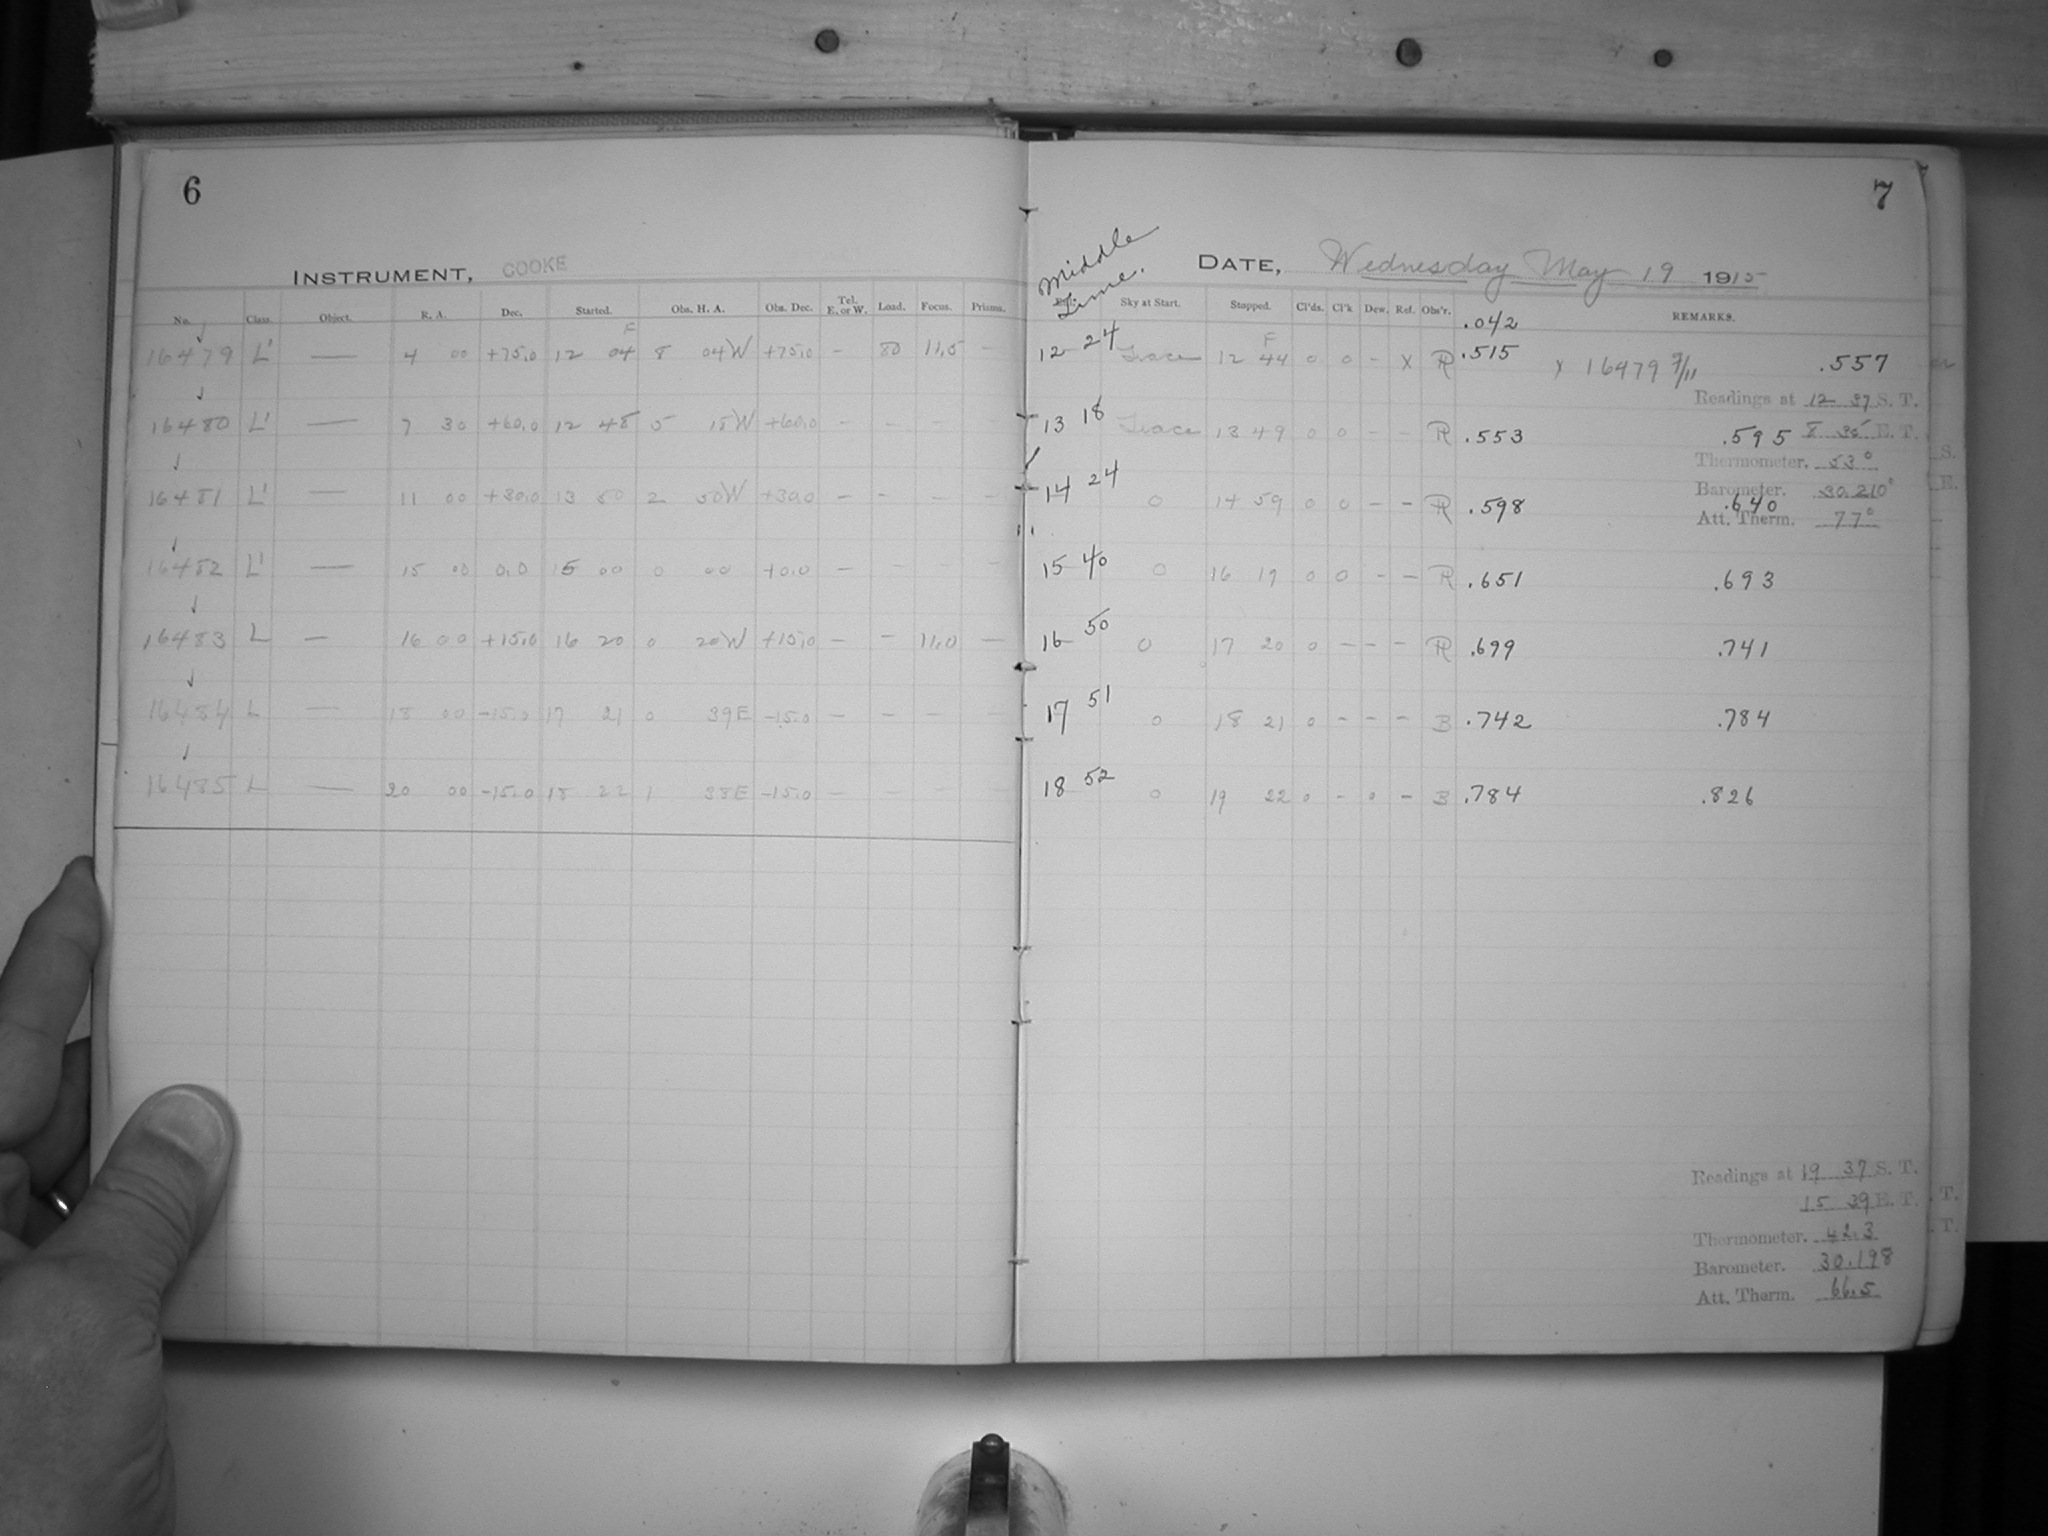 6
INSTRUMENT, COOKE
No. Class. Object. R. A. Dec. Started. Obs. H. A. Obs. Dec. Tel. E. or W. Load. Focus. Prisms.
16479 L' — 4 00 +75.0 12 04 F 8 04W +75.0 - 80 11.5 -
16480 L' — 7 30 +60.0 12 48 5 18W +60.0 - - - -
16481 L' — 11 00 +30.0 13 50 2 50W +30.0 - - - -
16482 L' — 15 00 0.0 15 00 0 00 +0.0 - - - -
16483 L — 16 00 +15.0 16 20 0 20W +15.0 - - 11.0 -
16484 L — 18 00 -15.0 17 21 0 39E -15.0 - - - -
16485 L — 20 00 -15.0 18 22 1 38E -15.0 - - - -
7
Middle Time.
DATE, Wednesday May 19 1915
Sky at Start. Stopped. Cl'ds. Cl'k Dew. Ref. Obs'r. REMARKS.
.042
12 24 Trace 12 44 F 0 0 - x R .515 x 16479 7/11 .557
Readings at 12 37 S. T.
13 18 Trace 13 49 0 0 - - R .553 .595 8 35 E. T.
Thermometer. 53°
14 24 0 14 59 0 0 - - R .598 .640
Barometer. 30.210
Att. Therm. 77°
15 40 0 16 19 0 0 - - R .651 .693
16 50 0 17 20 0 - - - R .699 .741
17 51 0 18 21 0 - - - B .742 .784
18 52 0 19 22 0 - 0 - B .784 .826
Readings at 19 37 S. T.
15 39 E. T.
Thermometer. 42.3
Barometer. 30.198
Att. Therm. 66.5